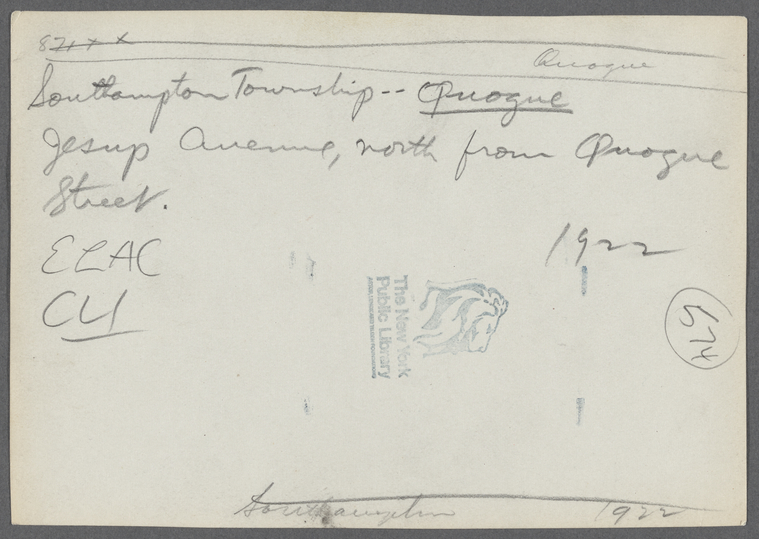 Quogue
Southampton Township -- Quogue
Jesup Avenue, north from Quogue
Street.
1922
ELAC
CU
The New York
Public Library
Southampton 1922